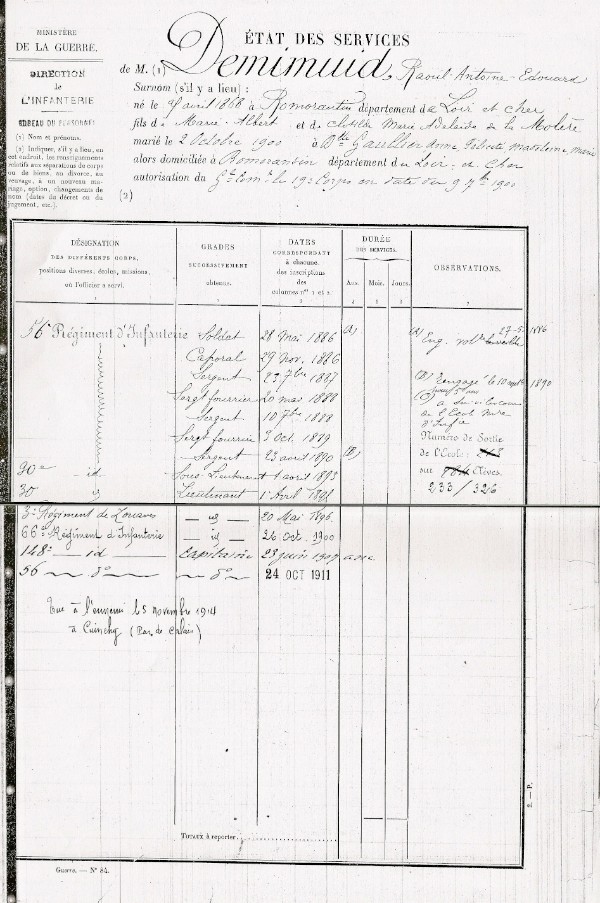 MINISTÈRE
DE LA GUERRE.
DIRECTION
de
L'INFANTERIE
BUREAU DU PERSONNEL
(1) Nom et prénoms.
(2) Indiquer, s'il y a lieu, en
cet endroit, les renseignements
relatifs aux séparations de corps
ou de biens, au divorce, au
veuvage, à un nouveau ma-
riage, option, changements de
nom (dates du décret ou du
jugement, etc.)
ÉTAT DES SERVICES
de M. (1) Demimuid, Raoul-Antoine-Edouard
Surnom (s'il y a lieu) :
né le avril 1868 à Romorantin département de Loir et Cher
fils de Marie Albert et de Clotilde Marie Adelaïde de la Molère
marié le 2 Octobre 1900 à Dlle Gaullier Anne Madeleine Marie
alors domiciliée à Romorantin département du Loir et Cher
autorisation du Gal Comt le 19e Corps en date du 9 7bre 1900
(2)
DÉSIGNATION
DES DIFFÉRENTS CORPS,
positions diverses, écoles, missions,
où l'officier a servi.
1
GRADES
SUCCESSIVEMENT
obtenus.
2
DATES
CORRESPONDANT
à chacune
des inscriptions
des
colonnes nos 1 et 2.
3
DURÉE
DES SERVICES.
Ans. Mois. Jours.
4 5 6
OBSERVATIONS.
7
56e Régiment d'Infanterie Soldat 28 Mai 1886 (A) (A) Eng. volre 27-5-1886
Caporal 29 Nov. 1886
Sergent 23 7bre 1887 (B) Rengagé le 10 1890
Sergt fourrier 20 mai 1888 (C) a
Sergent 10 7bre 1888 de l'Ecole Mre
d'Infie
Sergt fourrier 3 Oct. 1889 Numéro de Sortie
Sergent 23 avril 1890 (B) de l'Ecole :
90e id Sous-Lieutenant 1 avril 1893 sur Elèves.
30 id Lieutenant 1 Avril 1895 233/326
3e Régiment de Zouaves — id — 20 Mai 1896
66e Régiment d'Infanterie — id — 26 Oct. 1900
148e — id Capitaine 23 juin 1909
56 — do — — do — 24 OCT 1911
Tué à l'ennemi le 5 novembre 1914
à Cuinchy (Pas de Calais)
TOTAUX à reporter
Guerra. — No 84.